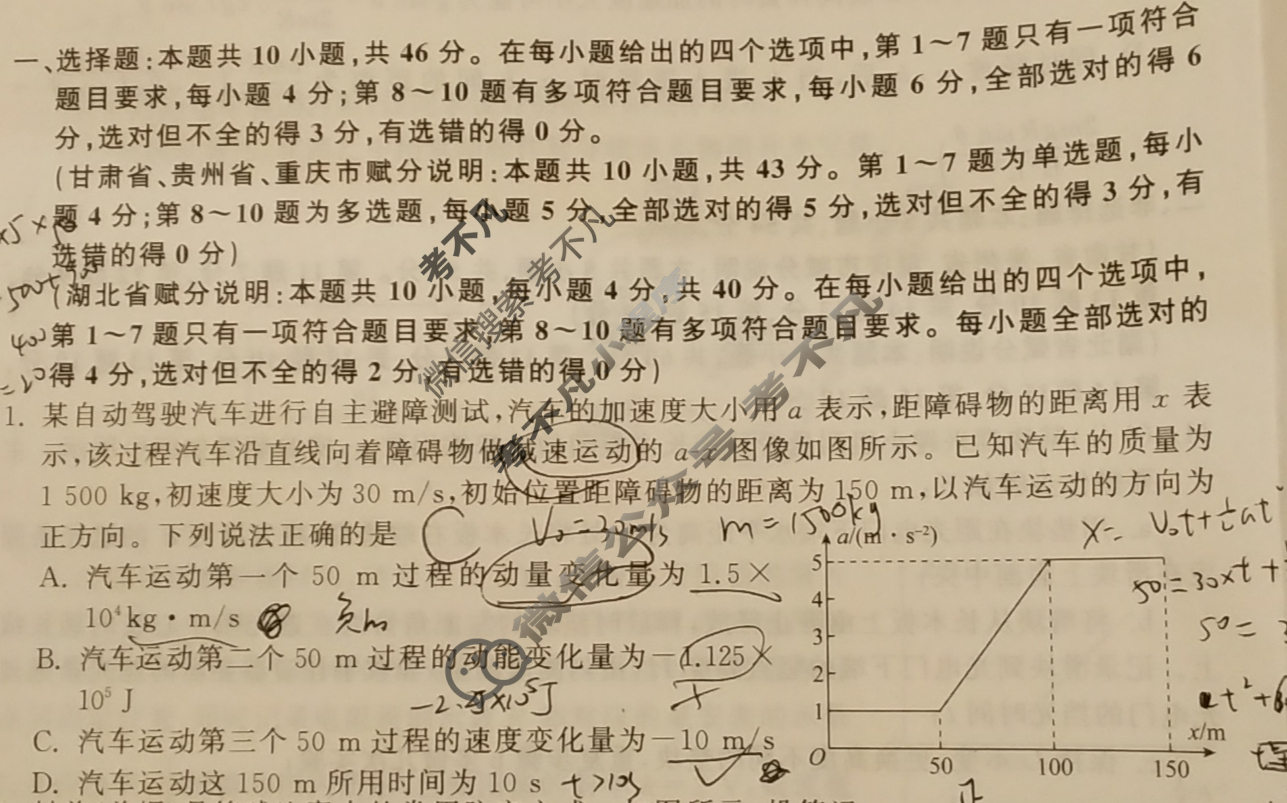 一、选择题:本题共 10 小题,共 46 分。在每小题给出的四个选项中,第 1～7 题只有一项符合
题目要求,每小题 4 分;第 8～10 题有多项符合题目要求,每小题 6 分,全部选对的得 6
分,选对但不全的得 3 分,有选错的得 0 分。
(甘肃省、贵州省、重庆市赋分说明:本题共 10 小题,共 43 分。第 1～7 题为单选题,每小
题 4 分;第 8～10 题为多选题,每小题 5 分,全部选对的得 5 分,选对但不全的得 3 分,有
选错的得 0 分)
(湖北省赋分说明:本题共 10 小题,每小题 4 分,共 40 分。在每小题给出的四个选项中,
第 1～7 题只有一项符合题目要求,第 8～10 题有多项符合题目要求。每小题全部选对的
得 4 分,选对但不全的得 2 分,有选错的得 0 分)
1. 某自动驾驶汽车进行自主避障测试,汽车的加速度大小用 a 表示,距障碍物的距离用 x 表
示,该过程汽车沿直线向着障碍物做减速运动的 a-x 图像如图所示。已知汽车的质量为
1 500 kg,初速度大小为 30 m/s,初始位置距障碍物的距离为 150 m,以汽车运动的方向为
正方向。下列说法正确的是
C V₀=30m/s m=1500kg
A. 汽车运动第一个 50 m 过程的动量变化量为 1.5×
10⁴ kg·m/s
B. 汽车运动第二个 50 m 过程的动能变化量为-1.125×
10⁵ J
C. 汽车运动第三个 50 m 过程的速度变化量为-10 m/s
D. 汽车运动这 150 m 所用时间为 10 s t>10s
a/(m·s⁻²)
5
4
3
2
1
O
50
100
150
x/m
x= V₀t+½at²
50=30×t+
50=
考不凡
微信搜索 考不凡
考不凡小程序
微信公众号 考不凡